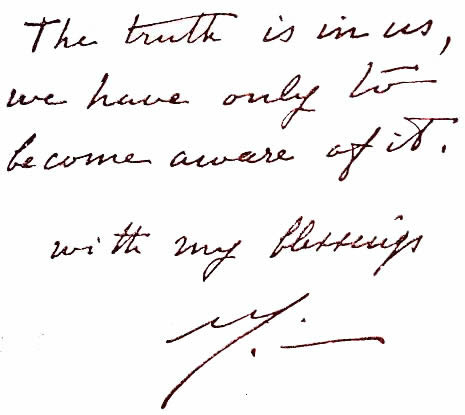 The truth is in us,
we have only to
become aware of it.
with my blessings